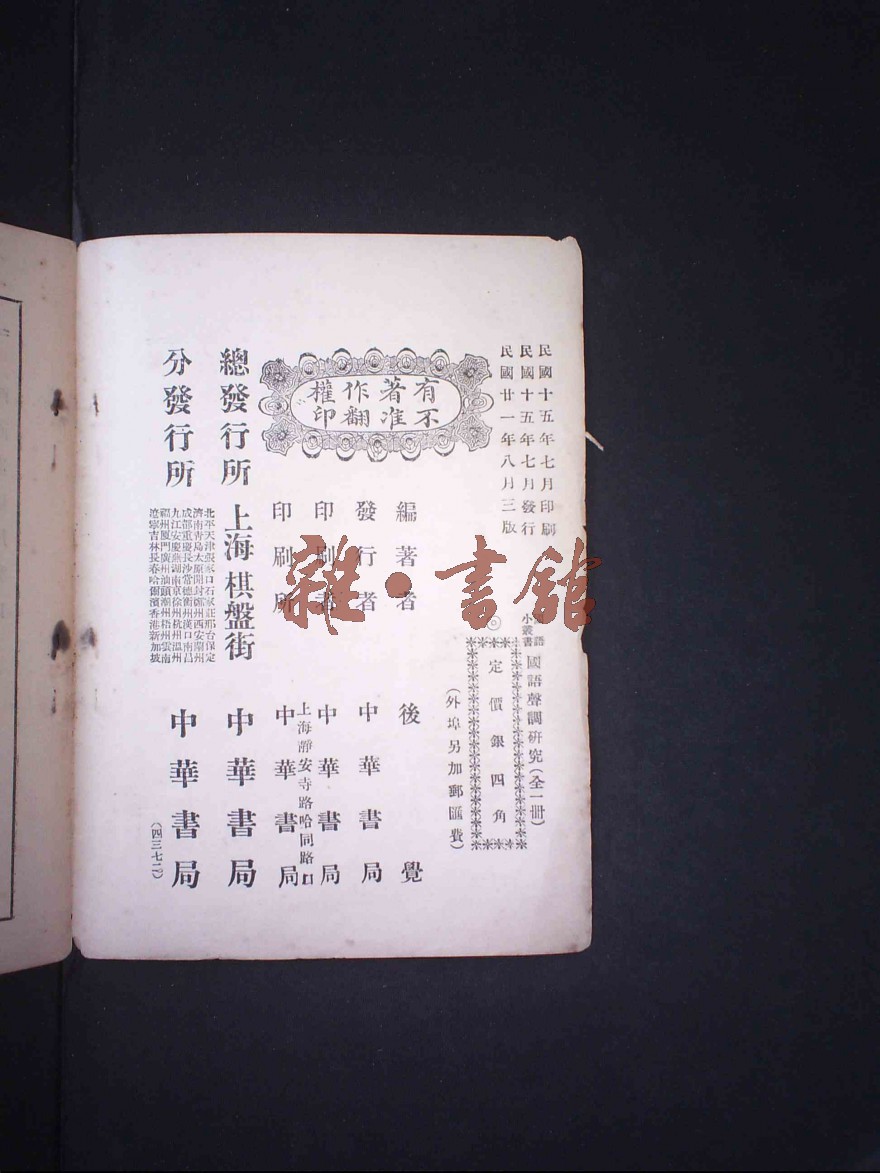 民國十五年七月印刷
民國十五年七月發行
民國廿一年八月三版
國語
小叢書
國語聲調研究(全一冊)
◎定價銀四角
(外埠另加郵匯費)
有著作權
不准翻印
編著者 後覺
發行者 中華書局
印刷者 中華書局
上海靜安寺路哈同路口
印刷所 中華書局
總發行所 上海棋盤街 中華書局
分發行所
北平天津張家口石家莊邢台保定
濟南青島太原開封鄭州西安蘭州
成都重慶長沙常德衡州漢口南昌
九江安慶蕪湖南京徐州杭州溫州
福州廈門廣州汕頭潮州梧州雲南
遼寧吉林長春哈爾濱香港新加坡
中華書局
雜·書館